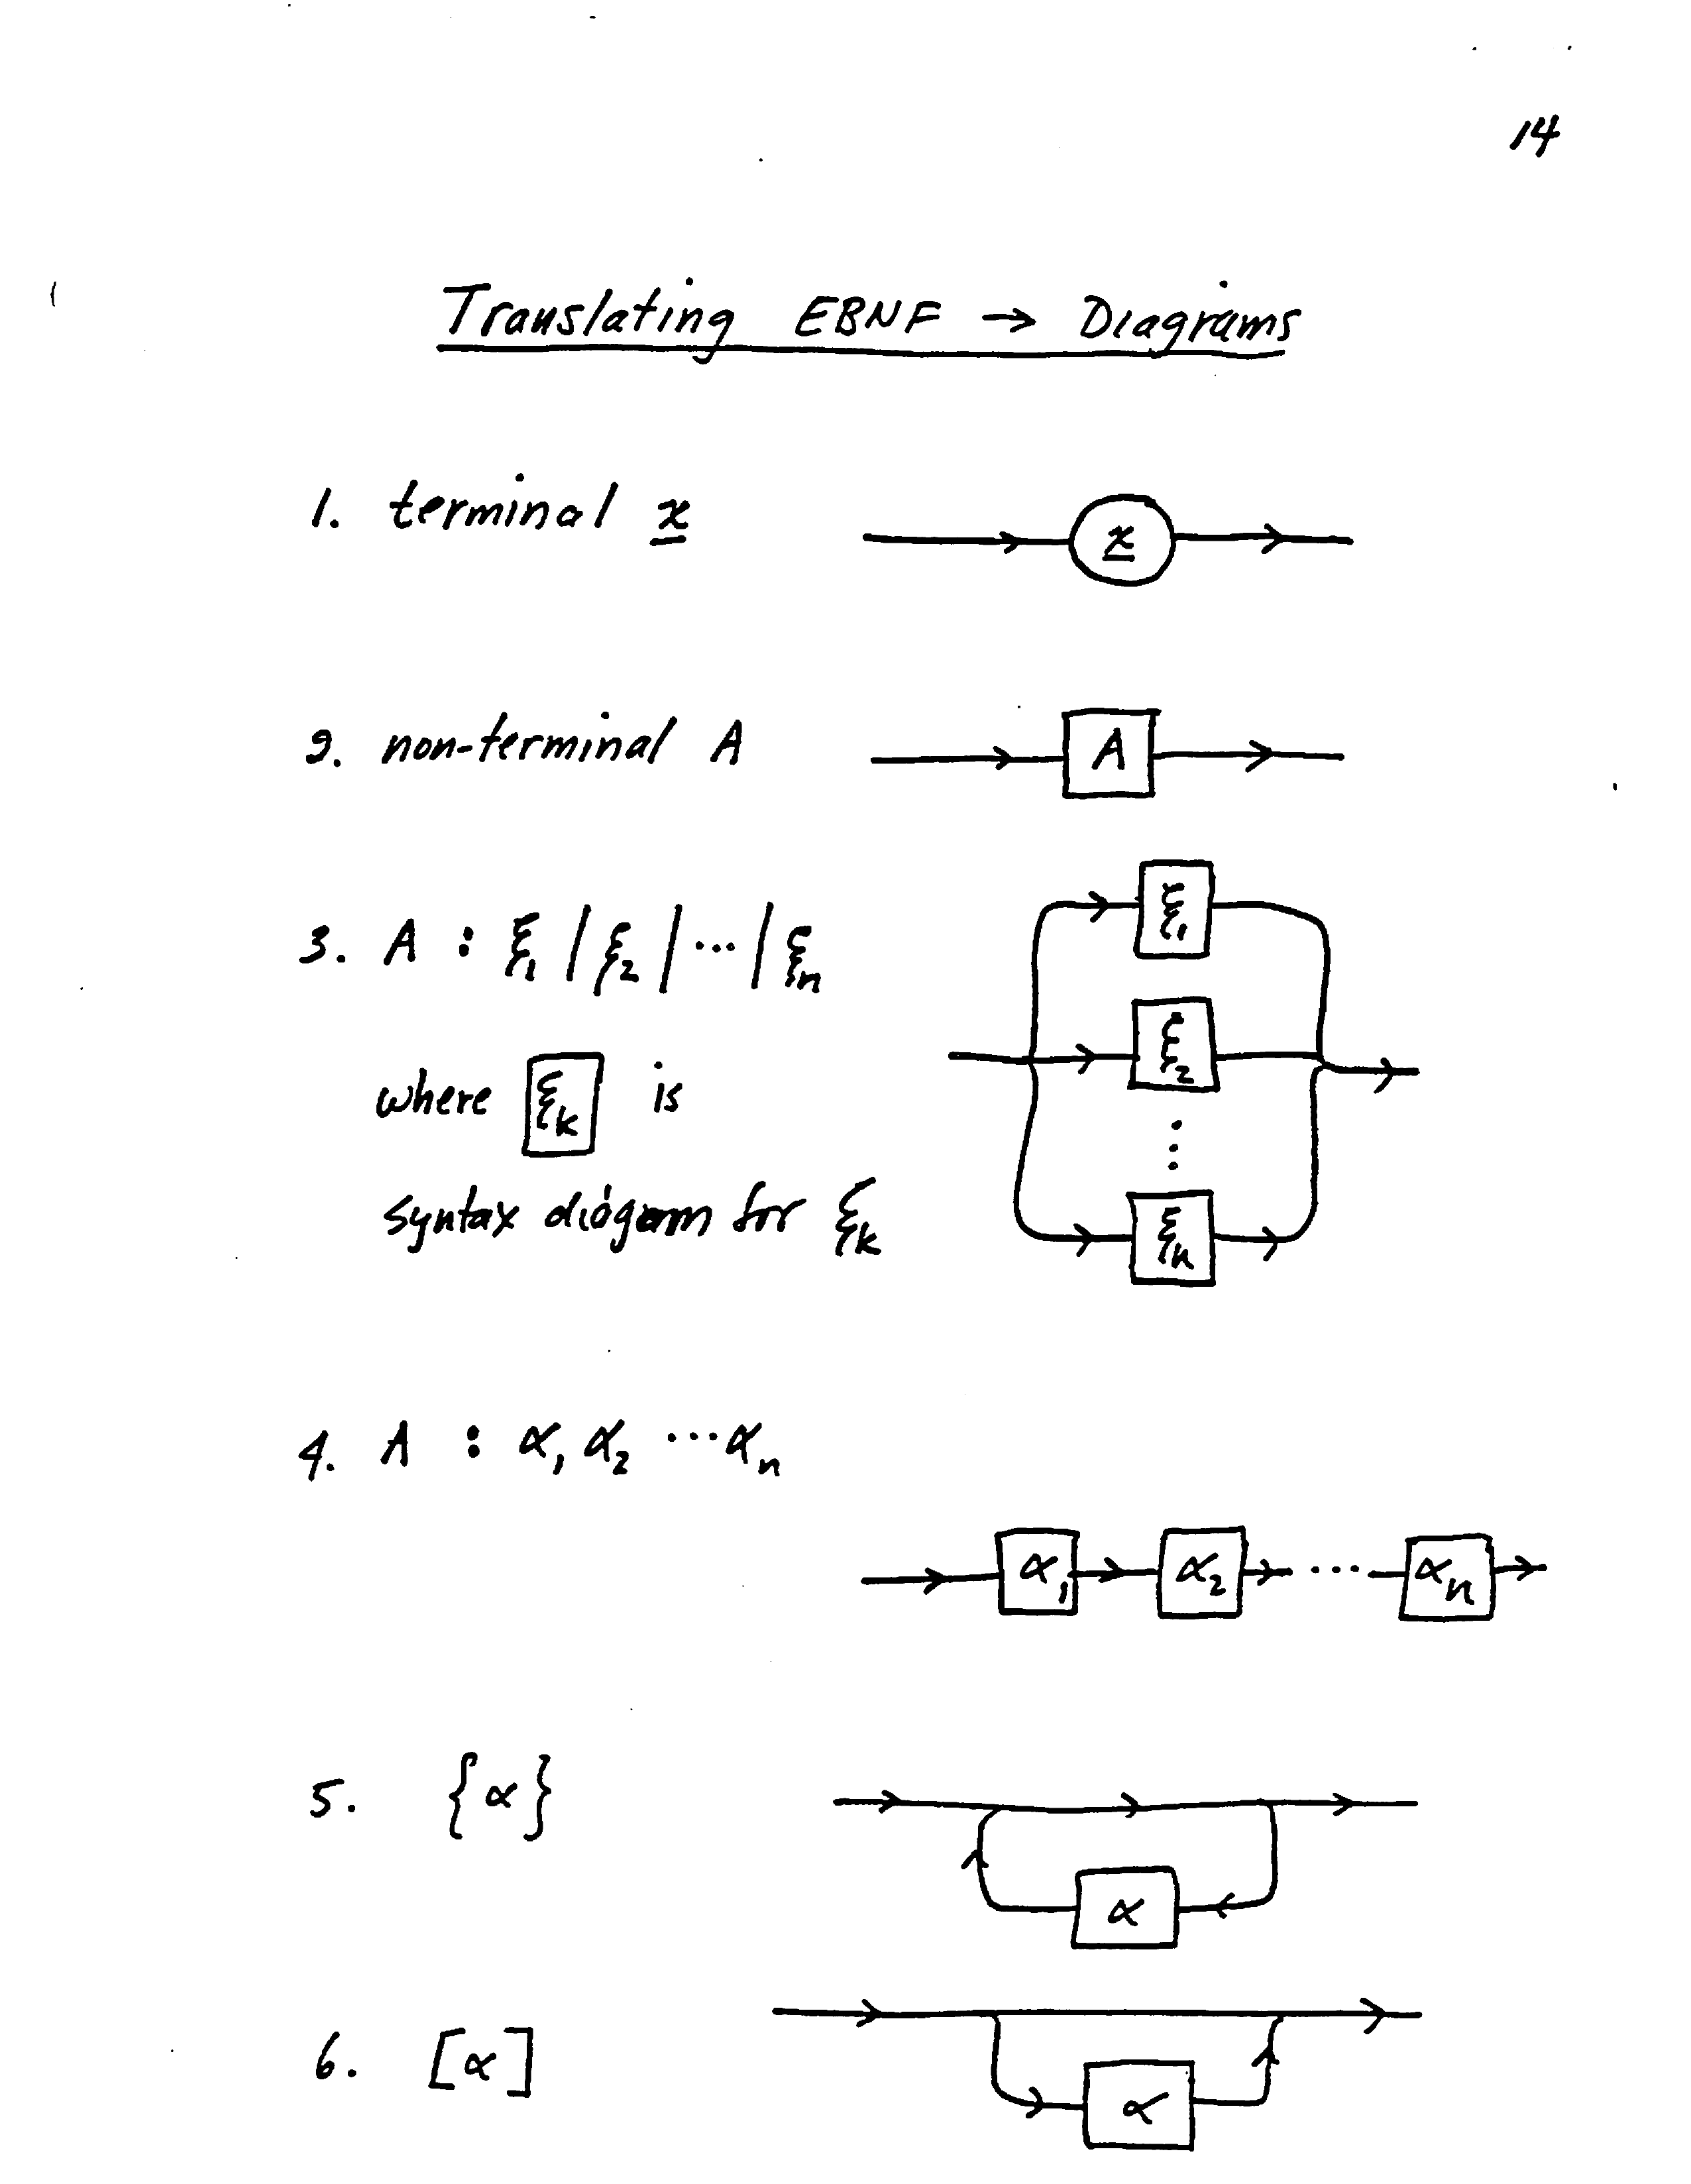 14
Translating EBNF → Diagrams
1. terminal x
x
2. non-terminal A
A
3. A : ξ₁ | ξ₂ | ··· | ξₙ
ξ₁
ξ₂
where ξₖ is
⋮
syntax diagram for ξₖ
ξₙ
4. A : α₁ α₂ ··· αₙ
α₁ α₂ ··· αₙ
5. {α}
α
6. [α]
α